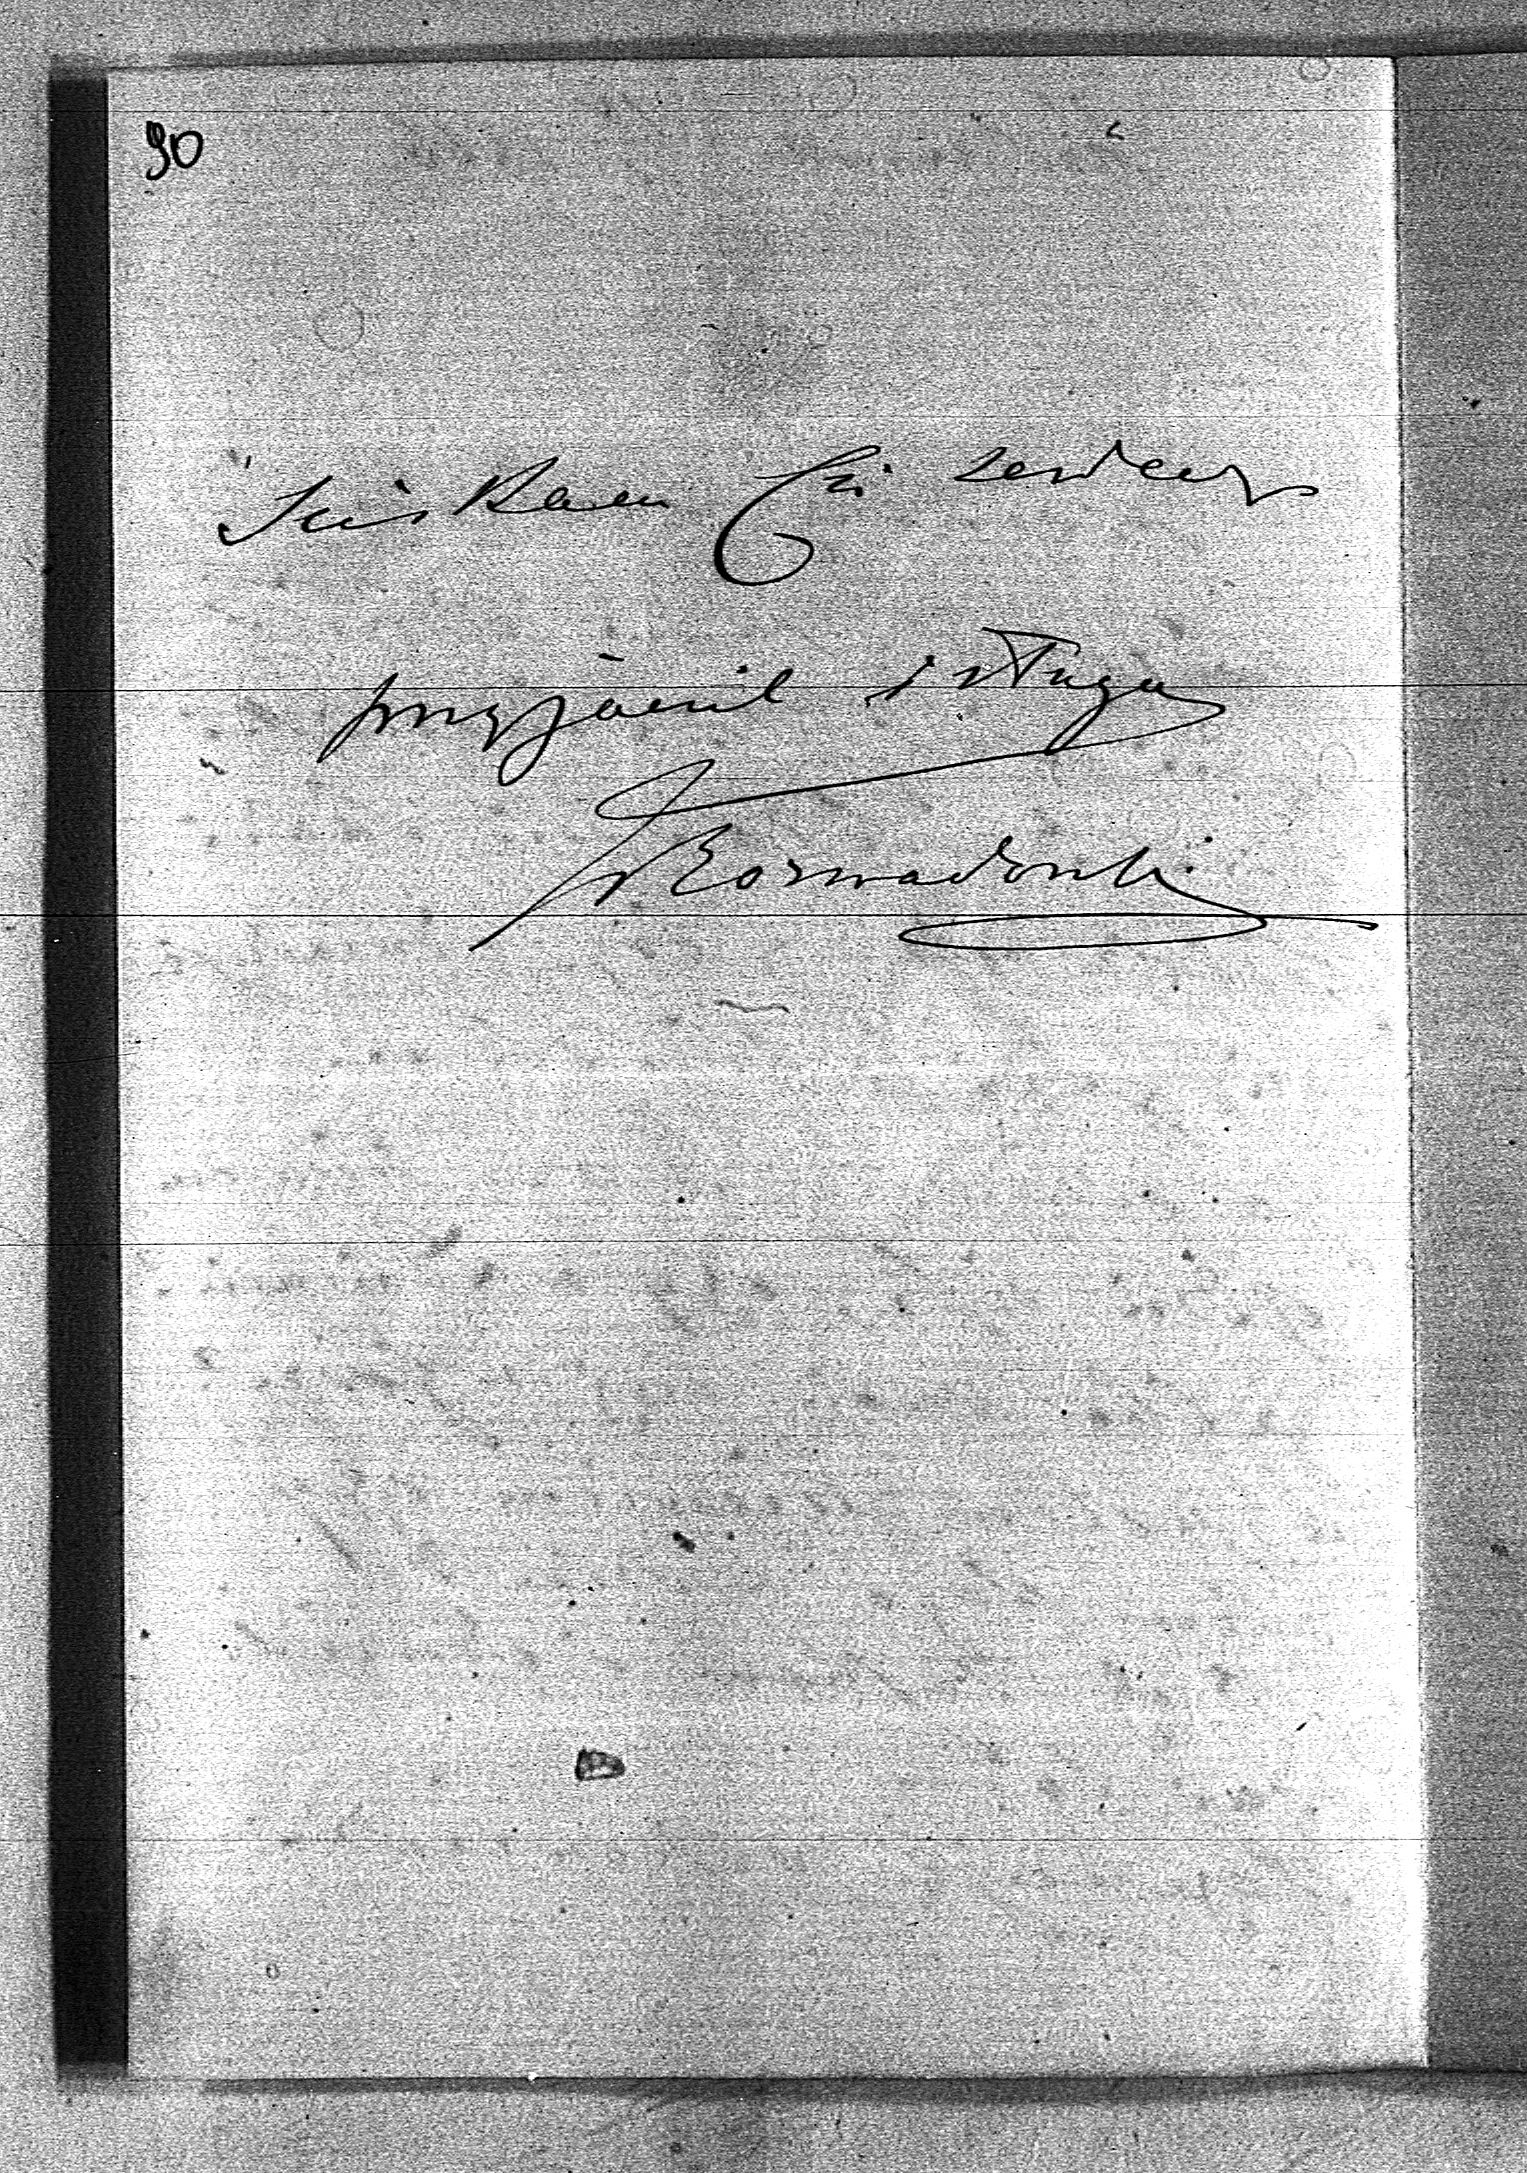 90
Ściskam Cię serdecz
przyjaciel i sługa
JRozwadowski